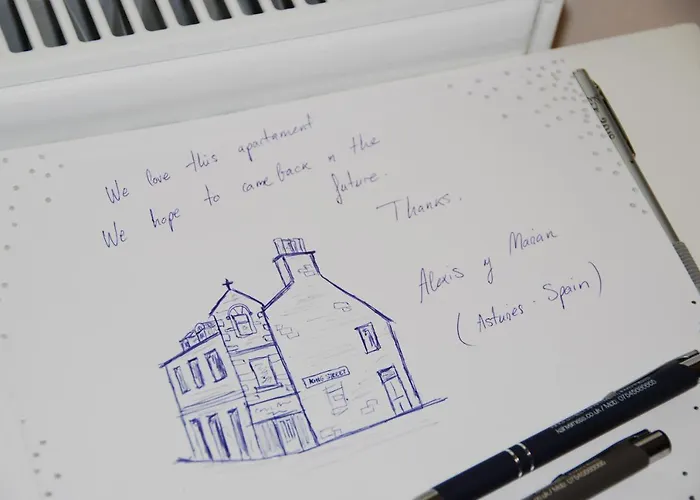 We love this apartament
We hope to came back n the
future.
Thanks.
Alexis y Marian
(Asturies. Spain)
KING STREET